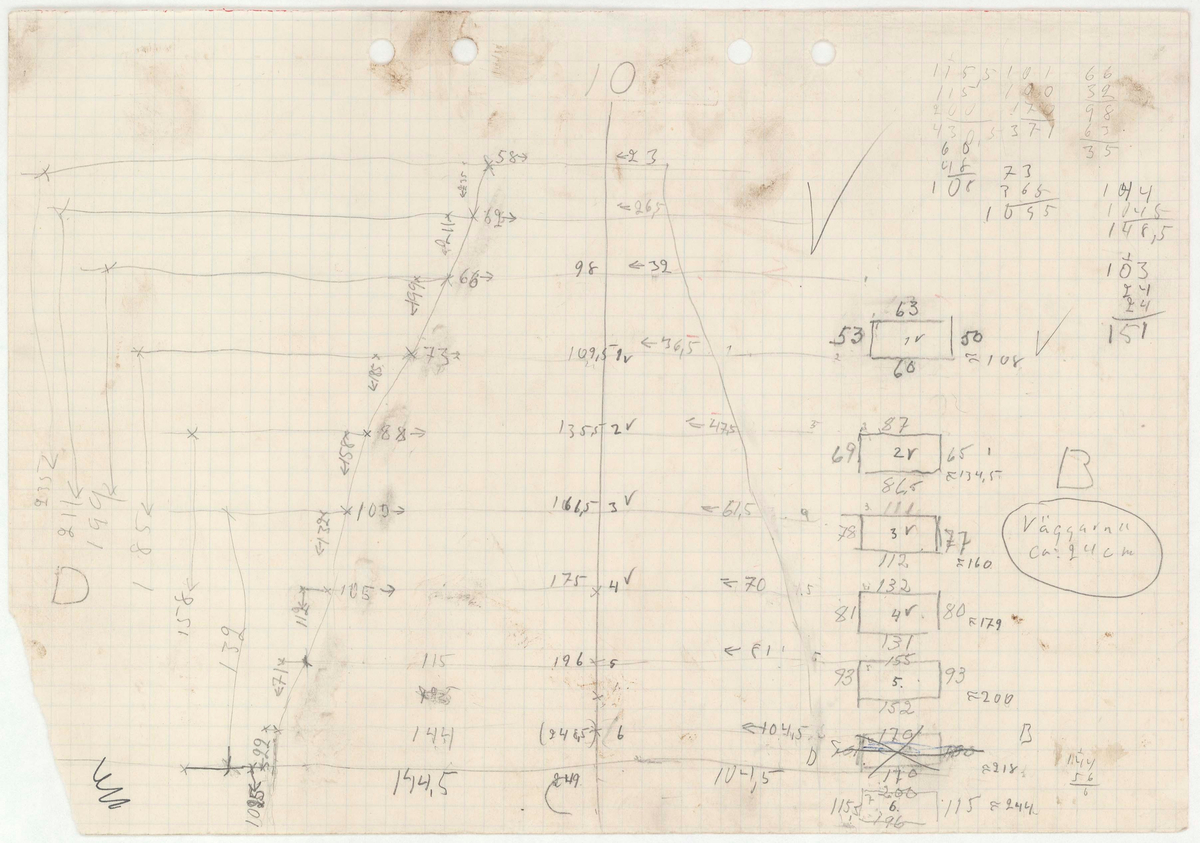 10
115,5 101 66
115 100 32
200 170 98
430,5 371 63
35
68
48 73
108 365
1095
144
1045
148,5
103
24
24
151
58 → ← 23
← 26,5
← 211
66 → 98 ← 32
← 199
63
53 1v 50
60 ≈ 108
73 109,5 1v ← 36,5
← 185
88 → 135,5 2v ← 47,5
87
69 2v 65
86,5 ≈ 134,5
← 158
B
103 → 3v ← 61,5
111
78 3v 77
112 ≈ 160
Väggarna
ca: 24 cm
← 132
2352
211
199
185
105 → 175 4v ← 70
132
81 4v 80
131 ≈ 179
112
D
158
139
115 196 5
155
93 5. 93
152 ≈ 200
← 71
144 6 ← 104,5
D
170
170 ≈ 218
B
322
1025
144,5 249 104,5
144
56
6
200
115,5 6. 115 ≈ 244
196